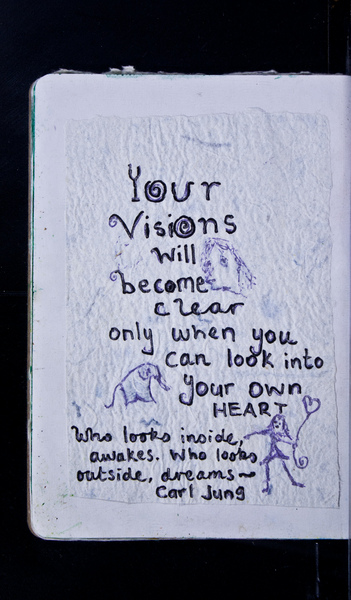 Your
Visions
will
become
clear
only when you
can look into
your own
HEART
Who looks inside,
awakes. Who looks
outside, dreams~
Carl Jung